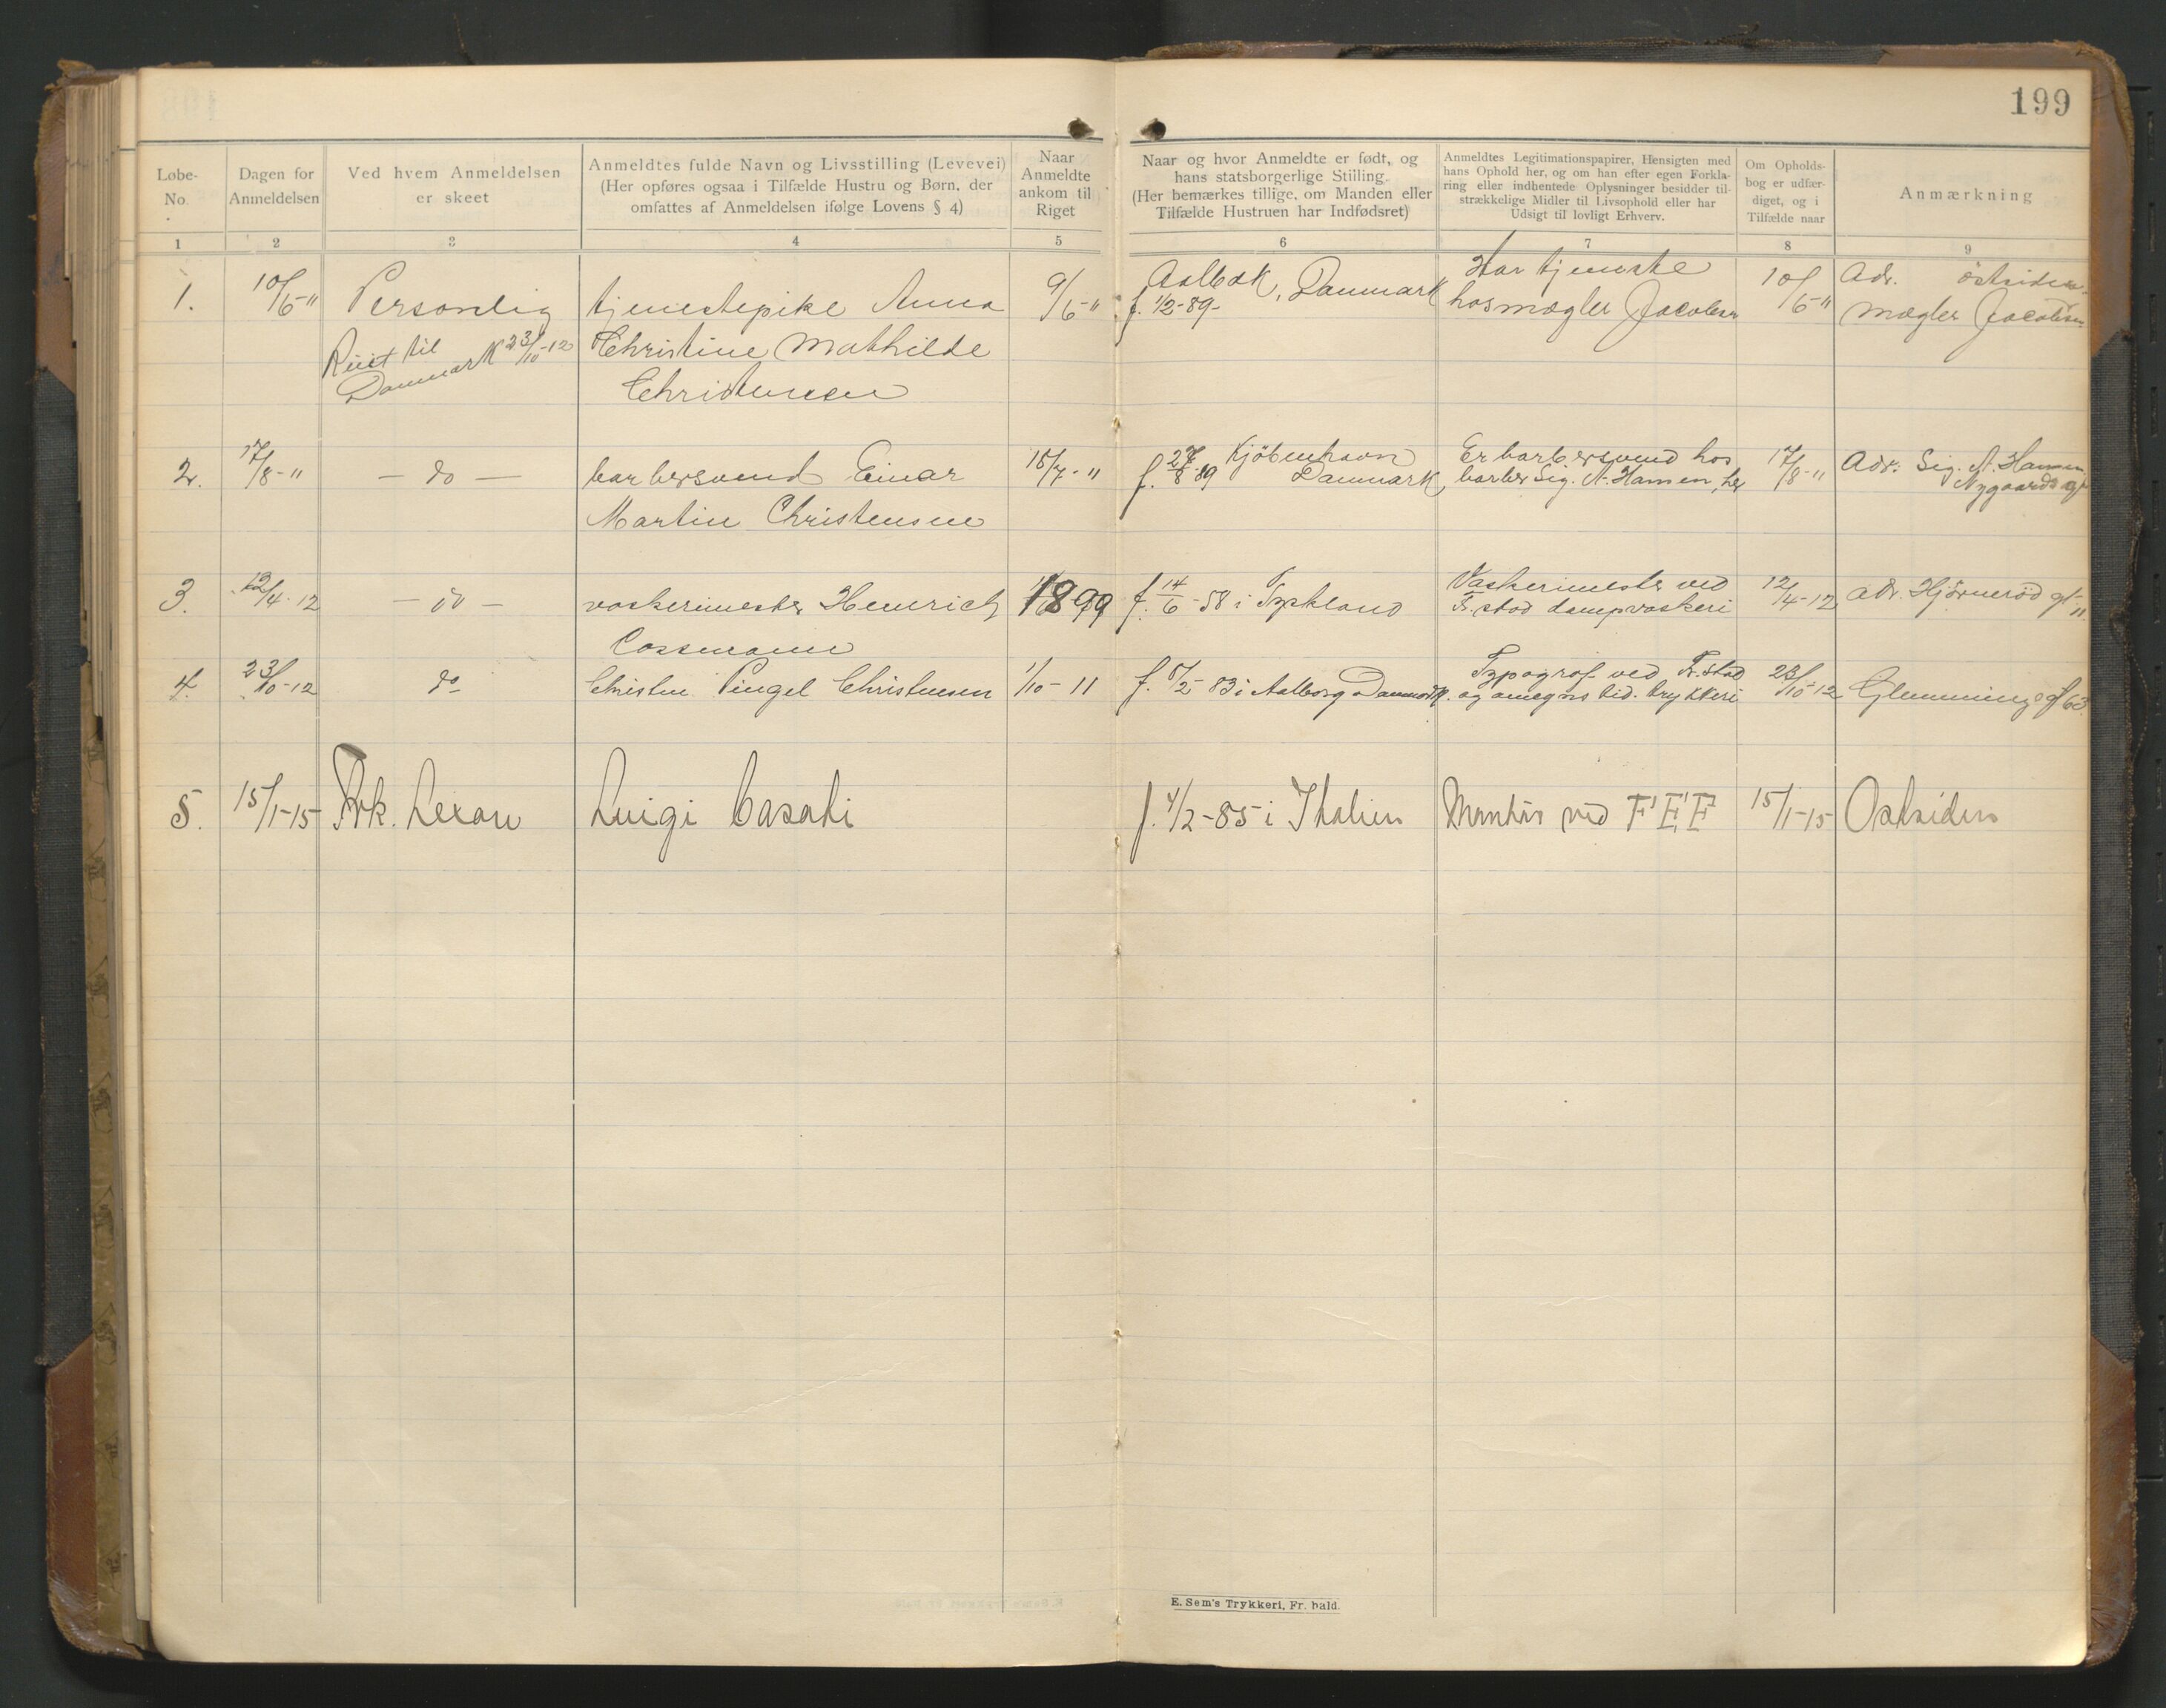 199
Løbe-
No.
Dagen for
Anmeldelsen
Ved hvem Anmeldelsen
er skeet
Anmeldtes fulde Navn og Livsstilling (Levevei)
(Her opføres ogsaa i Tilfælde Hustru og Børn, der
omfattes af Anmeldelsen ifølge Lovens § 4)
Naar
Anmeldte
ankom til
Riget
Naar og hvor Anmeldte er født, og
hans statsborgerlige Stiiling.
(Her bemærkes tillige, om Manden eller
Tilfælde Hustruen har Indfødsret)
Anmeldtes Legitimationspapirer, Hensigten med
hans Ophold her, og om han efter egen Forkla-
ring eller indhentede Oplysninger besidder til-
strækkelige Midler til Livsophold eller har
Udsigt til lovligt Erhverv.
Om Opholds-
bog er udfær-
diget, og i
Tilfælde naar
Anmærkning
1 2 3 4 5 6 7 8 9
1. 10/6-11 Personlig tjenestepike Anna 9/6-11 Aalbæk, Danmark Har tjeneste 10/6-11 Adr. östsiden
f. 1/2-89- hos mægler Jacobsen mægler Jacobsen
Reist til Christine Mathilde
Danmark 23/10-12 Christensen
2. 17/8-11 - do - barbersvend Einar 15/7-11 f. 27/8 89 Kjöbenhavn Er barbersvend hos 17/8-11 Adr. Sig. A. Hansen
Danmark, barber Sig. A. Hansen, her Nygaardsgt
Martin Christensen
3. 12/4-12 - do - vaskerimester Heinrich 1899 f. 14/6-58 i Tyskland Vaskerimester ved 12/4-12 adr. Hjörneröd gt 11
Fr.stad dampvaskeri
Cossmann
4. 23/10-12 do Christen Pingel Christensen 1/10-11 f. 5/2-83 i Aalborg Danmark. Typograf ved Fr.stad 23/10-12 Glemminggt 63
og omegns tid. trykkeri
5. 15/1-15 Luigi Casati f. 4/2-85 i Italien Montör ved F.E.F 15/1-15 Östsiden
E. Sem's Trykkeri, Fr. hald.